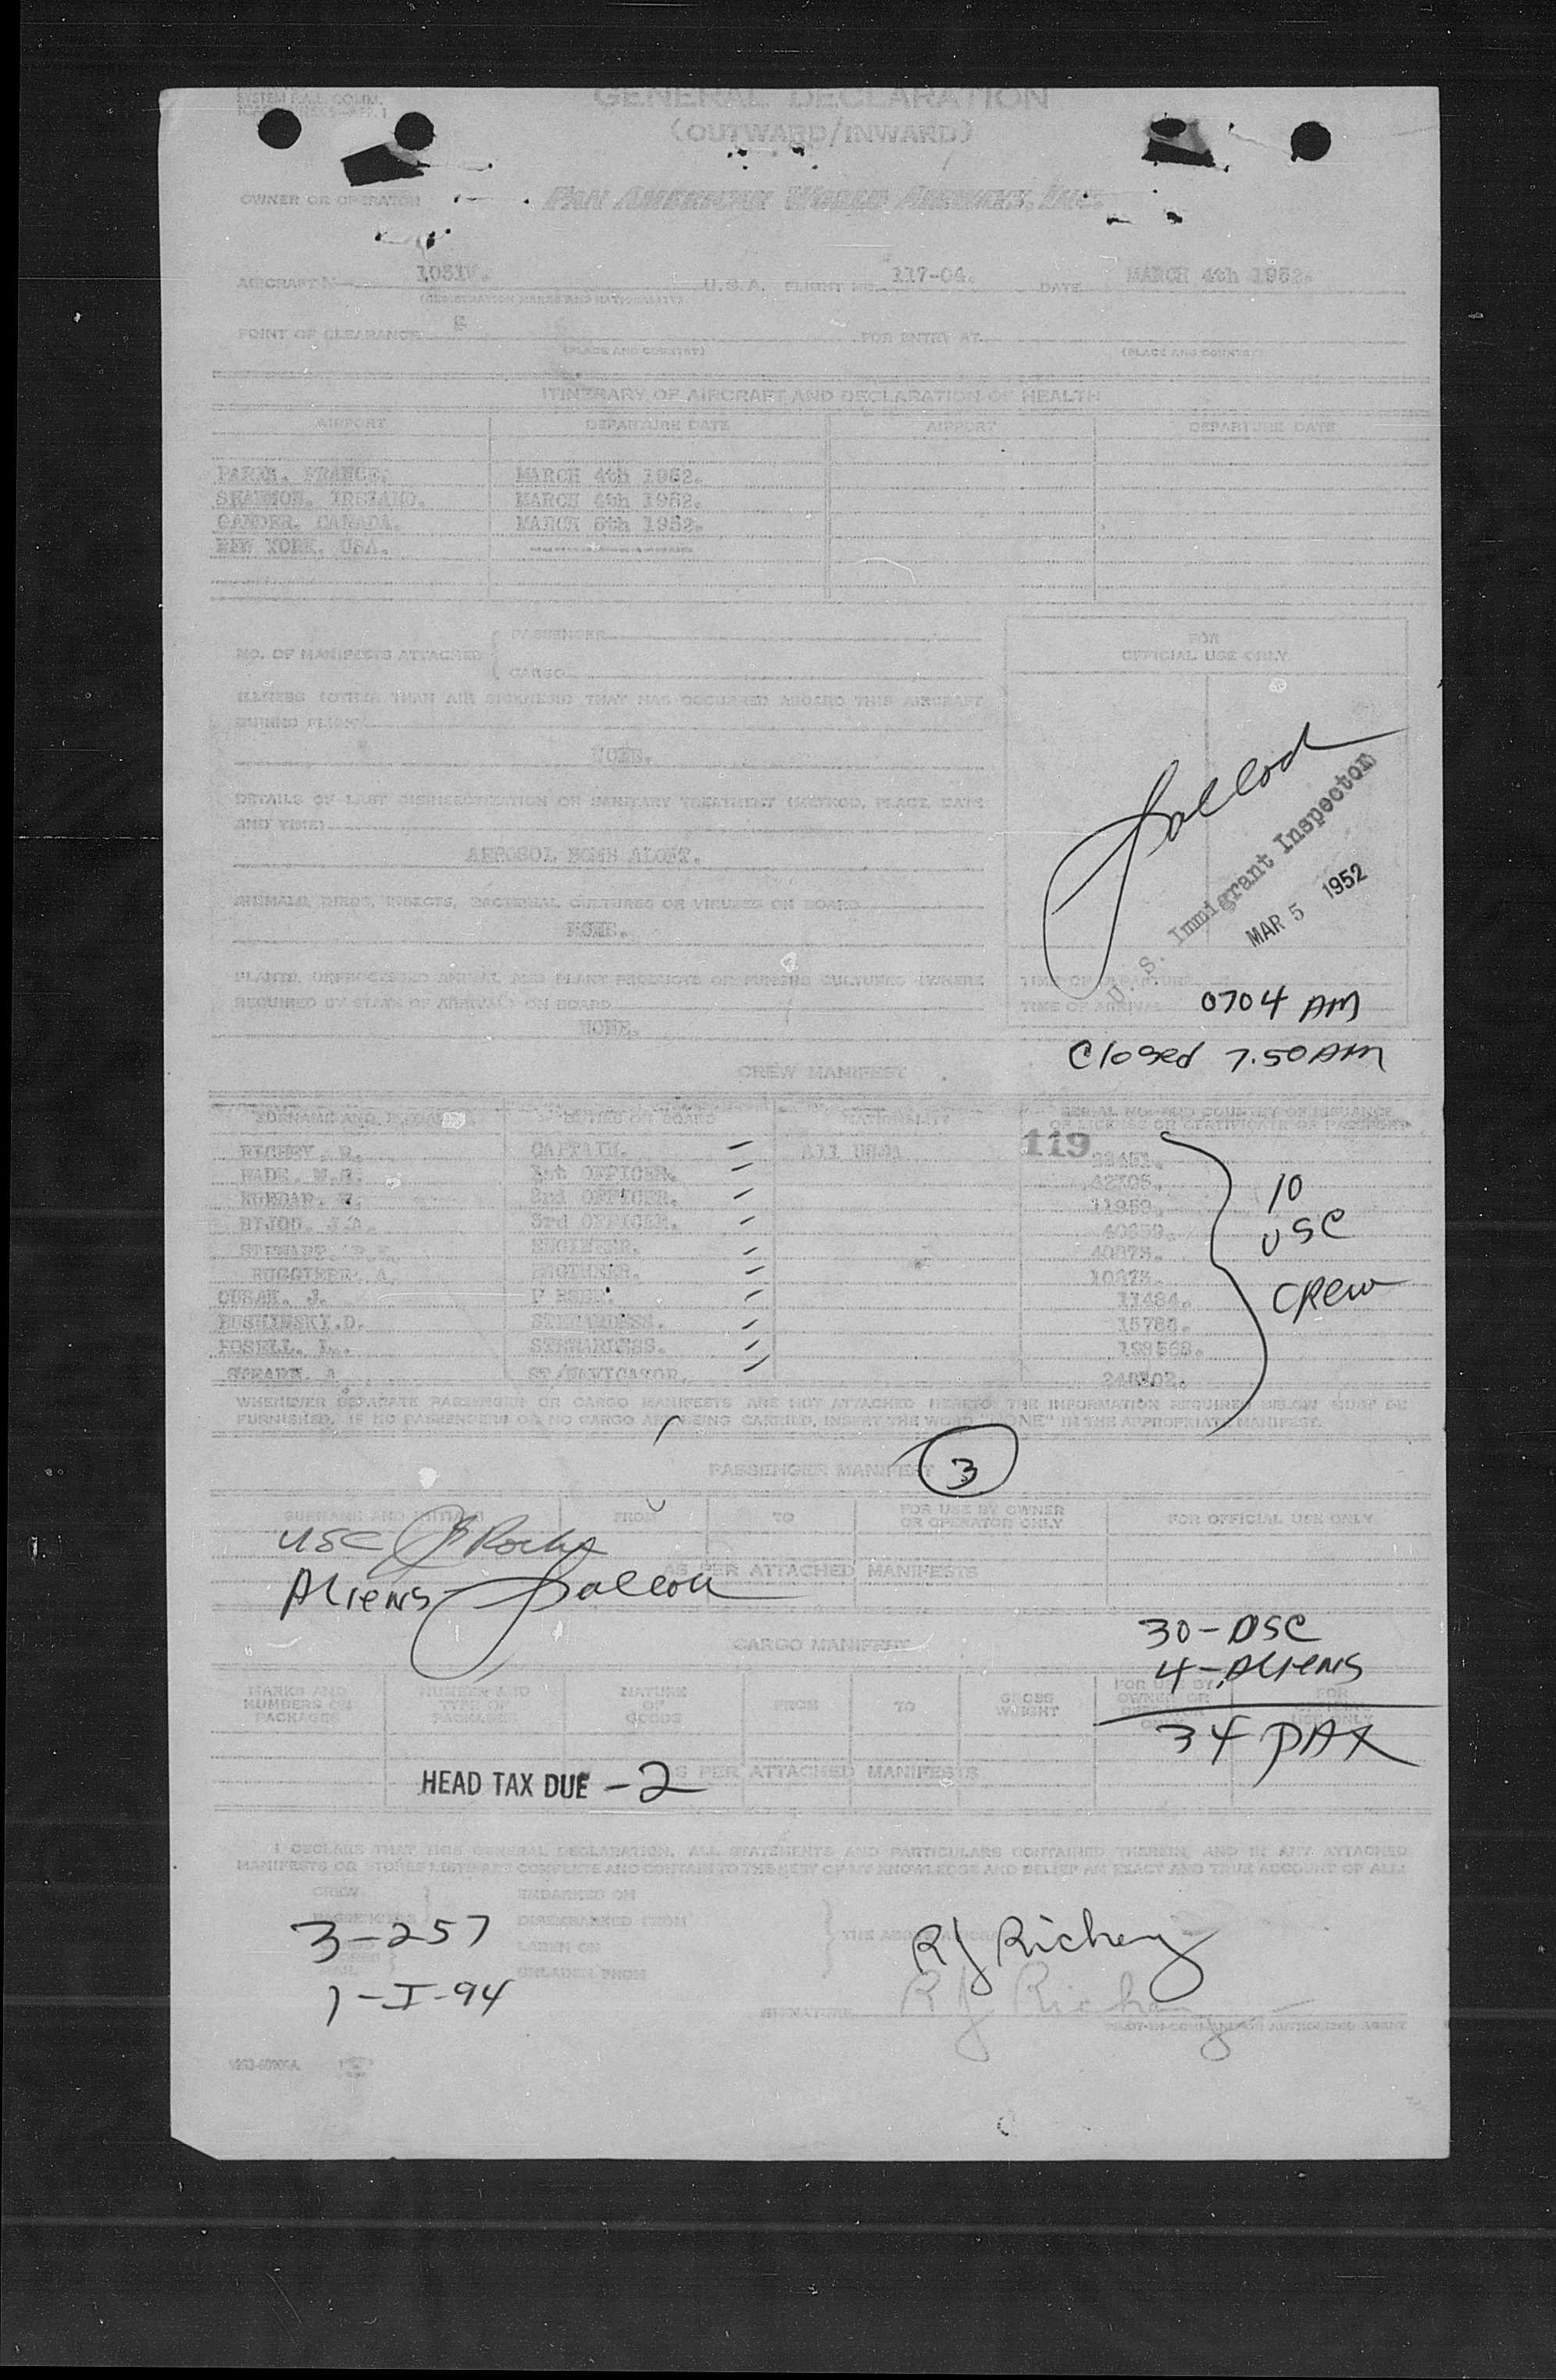 GENERAL DECLARATION
(OUTWARD/INWARD)
OWNER OR OPERATOR PAN AMERICAN WORLD AIRWAYS, INC.
AIRCRAFT N 1031V. U.S.A. FLIGHT NO. 117-04. DATE MARCH 4th 1952.
(REGISTRATION MARKS AND NATIONALITY)
POINT OF CLEARANCE FOR ENTRY AT
(PLACE AND COUNTRY) (PLACE AND COUNTRY)
ITINERARY OF AIRCRAFT AND DECLARATION OF HEALTH
AIRPORT DEPARTURE DATE AIRPORT DEPARTURE DATE
PARIS. FRANCE. MARCH 4th 1952.
SHANNON. IRELAND. MARCH 4th 1952.
GANDER. CANADA. MARCH 5th 1952.
NEW YORK. USA.
NO. OF MANIFESTS ATTACHED { PASSENGER
CARGO
FOR
OFFICIAL USE ONLY
ILLNESS (OTHER THAN AIR SICKNESS) THAT HAS OCCURRED ABOARD THIS AIRCRAFT
DURING FLIGHT
NONE.
DETAILS OF LAST DISINSECTIZATION OR SANITARY TREATMENT (METHOD, PLACE, DATE
AND TIME)
AEROSOL BOMB ALOFT.
ANIMALS, BIRDS, INSECTS, BACTERIAL CULTURES OR VIRUSES ON BOARD
NONE.
PLANTS, UNPROCESSED ANIMAL AND PLANT PRODUCTS OR FUNGUS CULTURES (WHERE
REQUIRED BY STATE OF ARRIVAL) ON BOARD
NONE.
U. S. Immigrant Inspector
MAR 5 1952
TIME OF DEPARTURE
TIME OF ARRIVAL 0704 AM
Closed 7.50 AM
CREW MANIFEST
SURNAME AND INITIALS DUTIES ON BOARD NATIONALITY SERIAL NO. AND COUNTRY OF ISSUANCE
OF LICENSE OR CERTIFICATE OR PASSPORT
119
RICHEY. R. CAPTAIN. All USA
WADE. W.H. 1st OFFICER. 42705.
2nd OFFICER. 11959.
3rd OFFICER. 40659.
STEWART. ENGINEER. 40873.
RUGGIERE. A. ENGINEER. 10873.
J. 17484.
D. STEWARDESS. 15780.
L. STEWARDESS.
A. NAVIGATOR.
10
USC
CREW
WHENEVER SEPARATE PASSENGER OR CARGO MANIFESTS ARE NOT ATTACHED HERETO THE INFORMATION REQUIRED BELOW MUST BE
FURNISHED. IF NO PASSENGERS OR NO CARGO ARE BEING CARRIED, INSERT THE WORD "NONE" IN THE APPROPRIATE MANIFEST.
PASSENGER MANIFEST 3
SURNAME AND INITIALS FROM TO FOR USE BY OWNER
OR OPERATOR ONLY FOR OFFICIAL USE ONLY
USC
AS PER ATTACHED MANIFESTS
Aliens
30-USC
4-Aliens
34 PAX
CARGO MANIFEST
MARKS AND
NUMBERS ON
PACKAGES NUMBER AND
TYPE OF
PACKAGES NATURE
OF
GOODS FROM TO GROSS
WEIGHT FOR USE BY
OWNER OR
OPERATOR
ONLY FOR
OFFICIAL
USE ONLY
AS PER ATTACHED MANIFESTS
HEAD TAX DUE -2
I DECLARE THAT THIS GENERAL DECLARATION, ALL STATEMENTS AND PARTICULARS CONTAINED THEREIN, AND IN ANY ATTACHED
MANIFESTS OR STORES LISTS ARE COMPLETE AND CONTAIN TO THE BEST OF MY KNOWLEDGE AND BELIEF AN EXACT AND TRUE ACCOUNT OF ALL:
CREW EMBARKED ON
PASSENGERS DISEMBARKED FROM
LADEN ON
UNLADEN FROM
THE ABOVE AIRCRAFT
3-257
1-I-94
RJ Richey
SIGNATURE RJ Richey
PILOT-IN-COMMAND OR AUTHORIZED AGENT